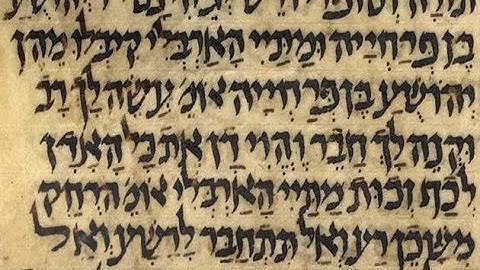 בן פרחייה ומתיי הארבלי קיבלו מהן
יהושע בן פרחייה אומ' עשה לך רב
וקנה לך חבר והוי דן את כל האדן
לכף זכות מתיי הארבלי אומ' הרחק
משכן רע ואל תתחבר לרשע ואל